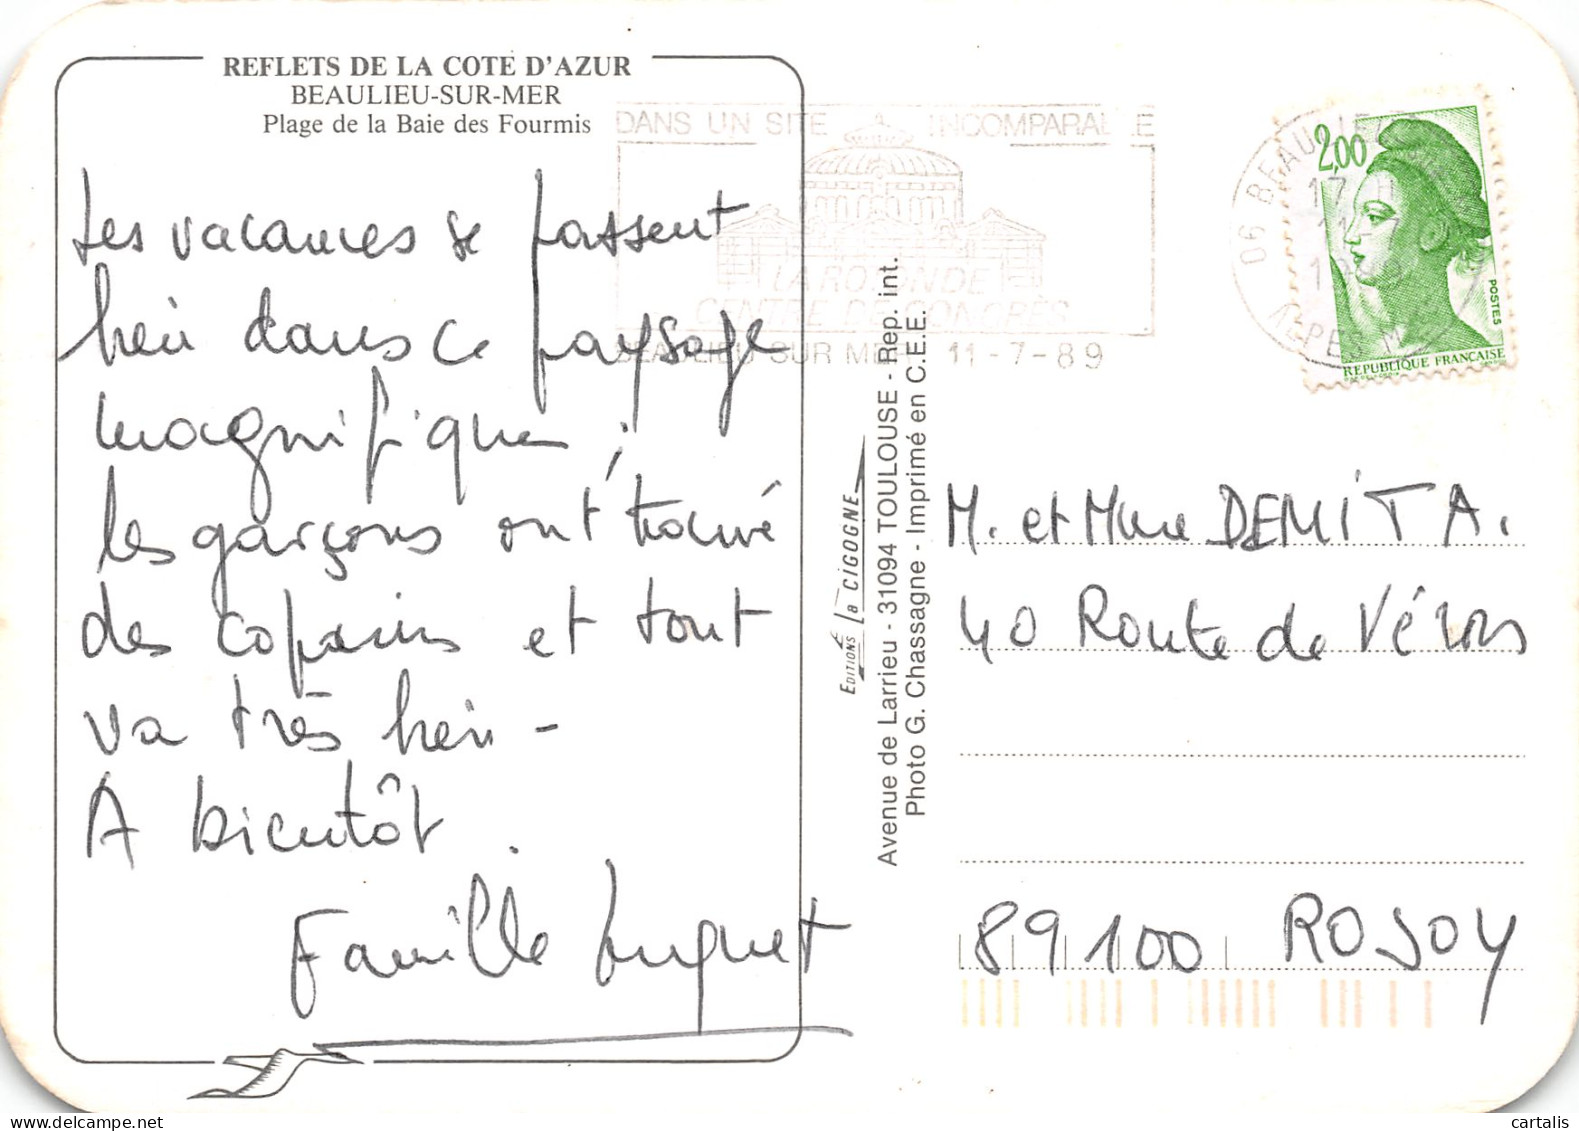 REFLETS DE LA COTE D'AZUR
BEAULIEU-SUR-MER
Plage de la Baie des Fourmis
Les vacances se passent
bien dans ce paysage
magnifique ;
les garçons ont trouvé
des copains et tout
va très bien -
A bientôt.
Famille Huguet
DANS UN SITE INCOMPARABLE
LA ROTONDE
CENTRE DE CONGRÈS
BEAULIEU SUR MER 11-7-89
06 BEAULIEU
ALPES M
2,00
POSTES
REPUBLIQUE FRANCAISE
EDITIONS la CIGOGNE
Avenue de Larrieu - 31094 TOULOUSE - Rep. int.
Photo G. Chassagne - Imprimé en C.E.E.
M. et Mme DEMIT A.
40 Route de Véron
89100 ROSOY
cartalis